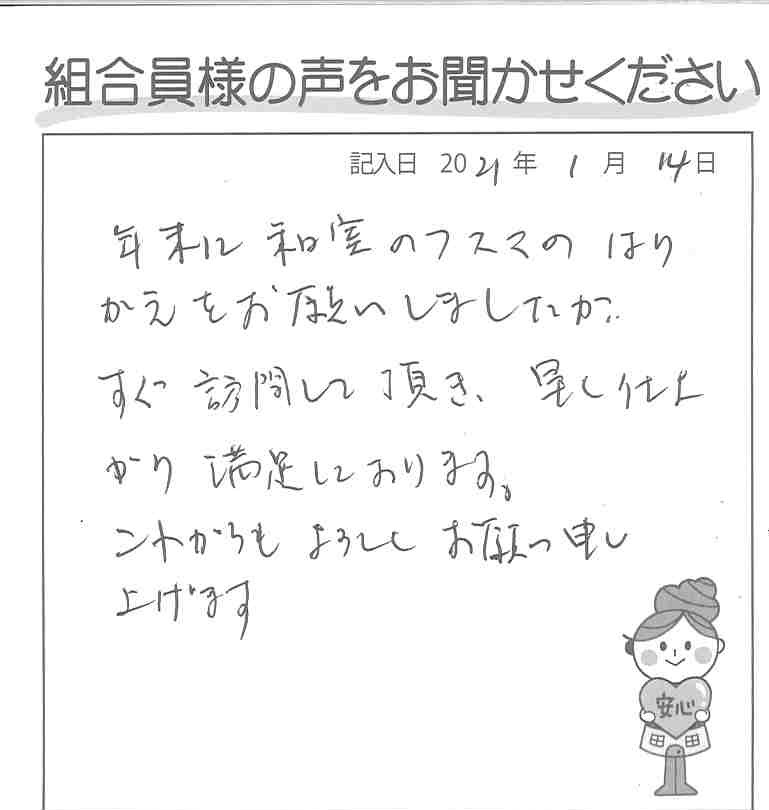 組合員様の声をお聞かせください
記入日 2021年 1月 14日
年末に 和室のフスマの はり
かえをお願いしましたが、
すぐ 訪問して頂き、早い仕上
がり 満足しております。
これからも よろしく お願い申し
上げます
安心